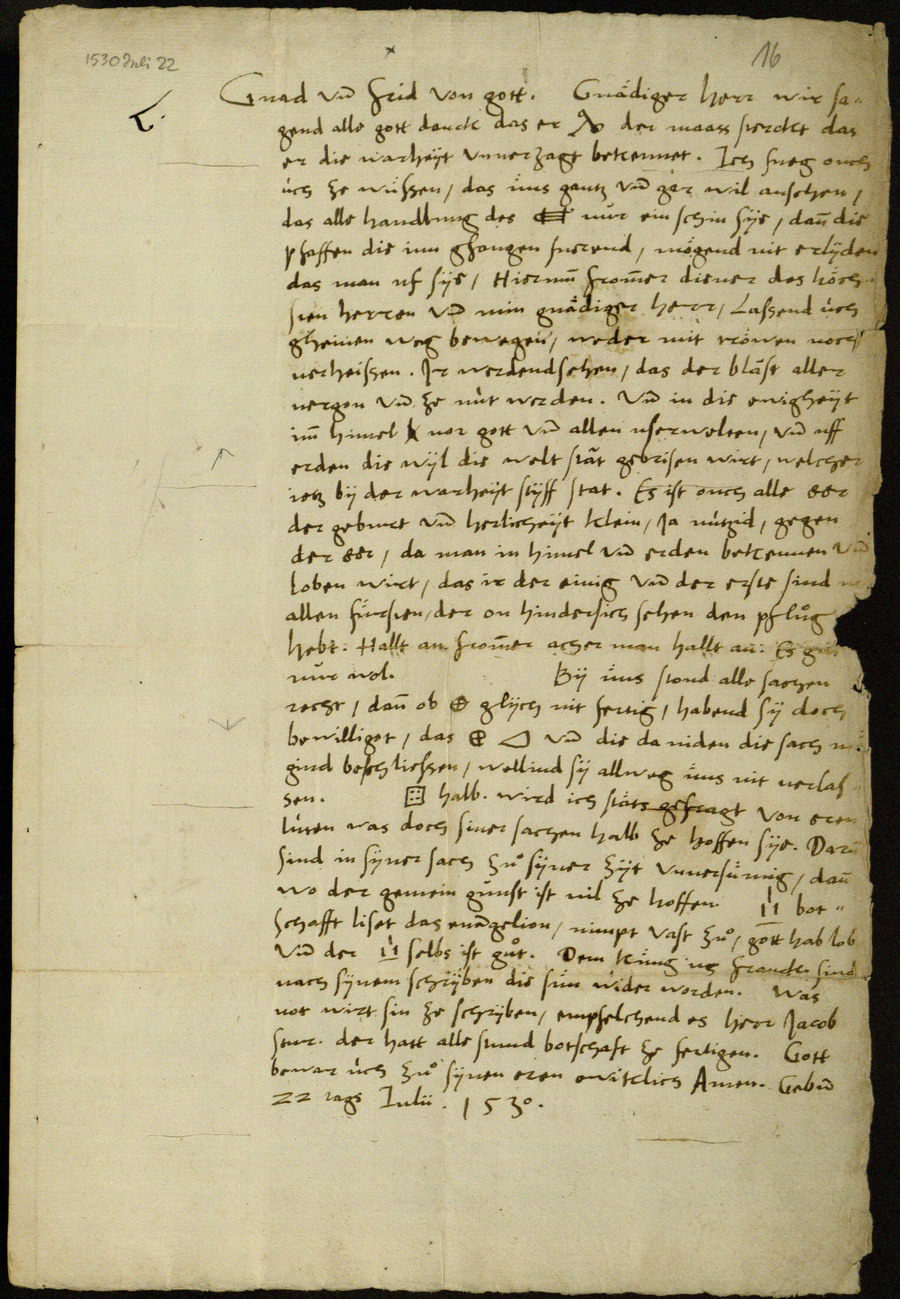 1530 Juli 22
16
Gnad vn̄ frid von gott. Gnädiger herr wir sa-
gend alle gott danck das er der maass sterckt das
er die warheyt vnuerzagt bekennet. Ich fueg ouch
üch ze wüssen, das üns gantz vn̄ gar wil ansehen,
das alle handlung des nur ein schin sye, dan̄ die
pfaffen die inn gfangen fuerend, mögend nit erlyden
das man uf sye, Hierum̄ from̄er diener des höch-
sten herren vn̄ min gnädiger herr, Lassend üch
gheinen weg bewegen, weder mit tröwen noch
verheissen. Ir werdend sehen, das der bläst aller
vergon vn̄ ze nüt werden. Vn̄ in die ewigheyt
im̄ himel vor gott vn̄ allen userwelten, vn̄ uff
erden die wyl die welt stät geprisen wirt, welcher
ietz by der warheyt styff stat. Es ist ouch alle eer
der geburt vn̄ herlicheyt klein, Ja nützid, gegen
der eer, da man in himel vn̄ erden bekennen vn̄
loben wirt, das ir der einig vn̄ der erste sind
allen fürsten, der on hindersich sehen den pflůg
hebt: Hallt an from̄er acher man hallt an: Es gat
nur wol. By üns stond alle sachen
recht, dan̄ ob ⊕ glych nit fertig, habend sy doch
bewilliget, das ⊕ vn̄ die da niden die sach
gind beschliessen, wellind sy allweg üns nit verlas-
sen. halb. wird ich stäts gefragt von eren
lüten was doch siner sachen halb ze hoffen sye. Daru
sind in syner sach zů syner zyt vnuersümig, dan̄
wo der gemein gunst ist vil ze hoffen. bot-
schafft liset das euangelion, nimpt vast zů, gott hab lob
Vn̄ der selbs ist gůt. Dem küng us franck. sind
nach synem schryben die sün wider worden. Was
not wirt sin ze schryben, empfelchend es herr Jacob
Stur. der hatt alle stund botschaft ze fertigen. Gott
bewar üch zů synen eren ewiklich Amen. Gebn̄
22 tags Iulii. 1530.